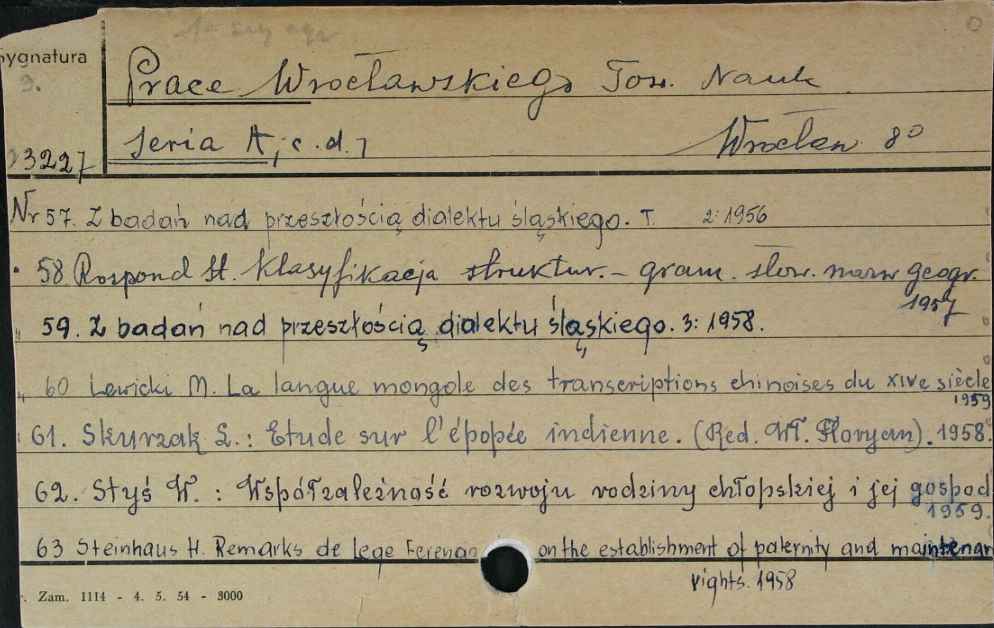 Sygnatura
Prace Wrocławskiego Tow. Nauk
Seria A, c.d.
Wrocław 8°
3227
Nr 57. Z badań nad przeszłością dialektu śląskiego. T. 2: 1956
58 Rospond St. Klasyfikacja struktur. - gram. słow. nazw geogr.
1957
59. Z badań nad przeszłością dialektu śląskiego. 3: 1958.
60 Lewicki M. La langue mongole des transcriptions chinoises du XIVe siècle
1959
61. Skurzak L.: Etude sur l'épopée indienne. (Red. Wł. Floryan). 1958.
62. Styś W. : Współzależność rozwoju rodziny chłopskiej i jej gospod
1959.
63 Steinhaus H. Remarks de lege Ferenda on the establishment of paternity and maintenan
rights. 1958
Zam. 1114 - 4. 5. 54 - 3000